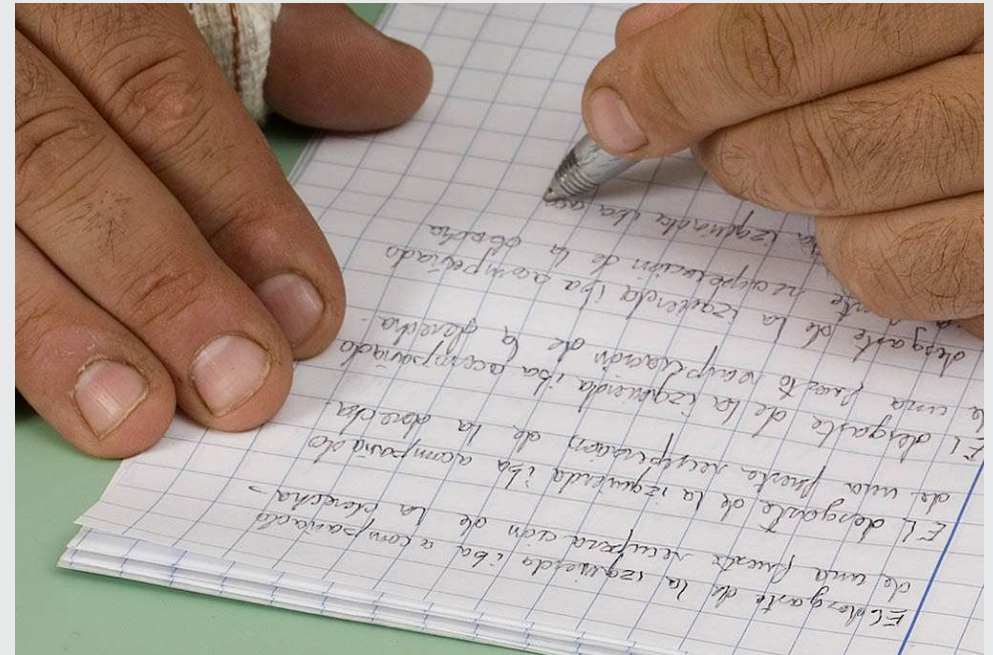 El desgaste de la izquierda iba a compañado
de una fuerte recupera ción de la derecha -
El desgaste de la izquierda iba acompañado
de una fuerte recuperacion de la derecha.
El desgaste de la izquierda iba acompañado
de una fuerte recuperación de la derecha.
desgaste de la izquierda iba acompañado
recuperación de la derecha
izquierda iba